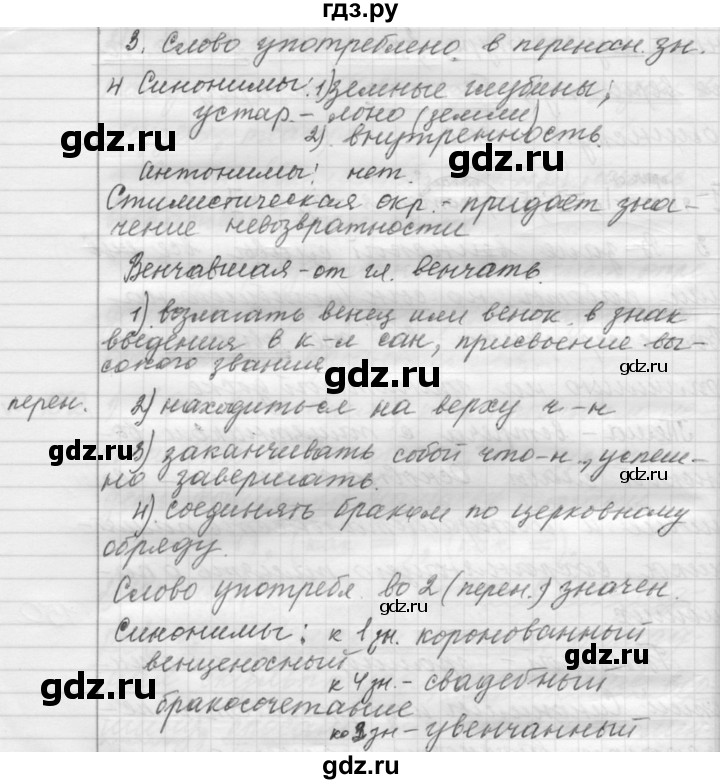 гдз.ру
3. Слово употреблено в перенан. зн.
4 Синонимы: 1) земные глубины;
устар. - лоно (земли)
gdz.ru
2) внутренность.
gdz.ru
Антонимы: нет.
Стилистическая окр. - придаёт зна-
чение невозвратности
gdz.ru
Венчавшая - от гл. венчать.
1) возлагать венец или венок в знак
gdz.ru
введения в к-л сан, присвоение вы-
сокого звания
gdz.ru
перен. 2) находиться на верху ч-н
gdz.ru
3) заканчивать собой что-н., успеш-
но завершать.
gdz.ru
4) соединять браком по церковному
обряду.
Слово употребл. во 2 (перен.) значен.
gdz.ru
Синонимы: к 1 зн. коронованный
венценосный
gdz.ru
gdz.ru
к 4 зн. - свадебный
бракосочетавшие
ко 3 зн - увенчанный